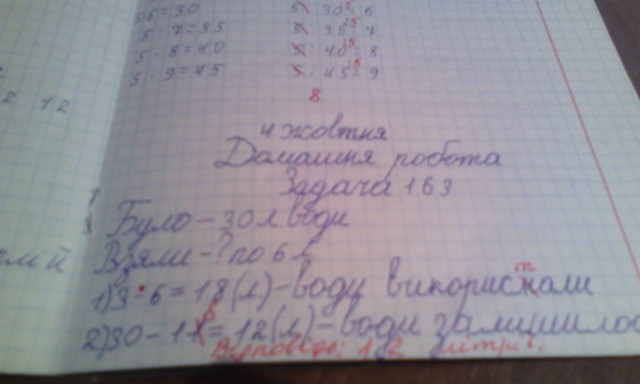 5·6=30 5: 30:5=6
5·7=35 5: 35:5=7
5·8=40 5: 40:5=8
5·9=45 5: 45:5=9
8
12
4 жовтня
Домашня робота
Задача 163
Було – 30 л води
Взяли – ? по 6 л
1) 3·6=18(л) – воду використали
2) 30–18=12(л) – води залишилос
Відповідь: 12 літрів.